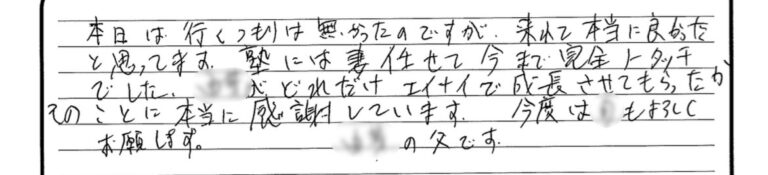 本日は行くつもりは無かったのですが、来れて本当に良かった
と思ってます。塾には妻任せで今まで完全ノータッチ
でした。がどれだけエイメイで成長させてもらったか
そのことに本当に感謝しています。今度はもよろしく
お願します。の父です。